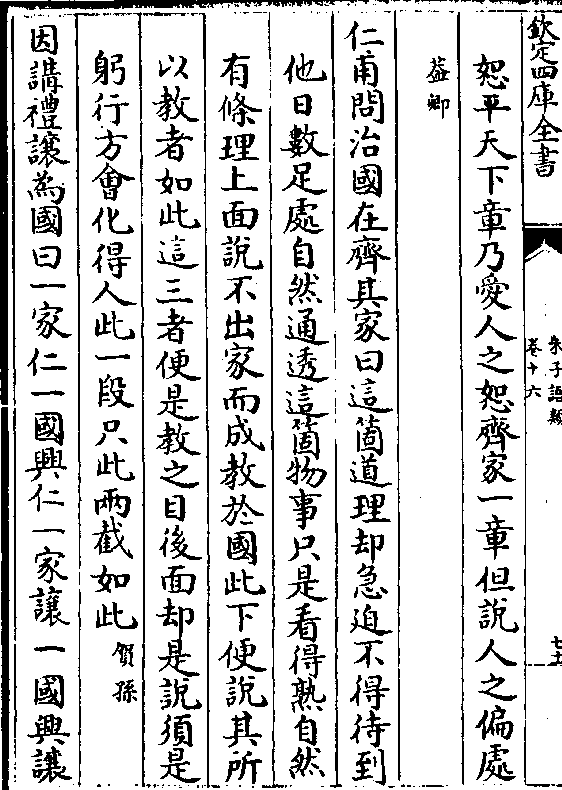 欽定四庫全書
朱子語類
卷十六
恕平天下章乃愛人之恕齊家一章但說人之偏處
葢卿
仁甫問治國在齊其家曰這箇道理却急迫不得待到
他日數足處自然通透這箇物事只是看得熟自然
有條理上面說不出家而成教於國此下便說其所
以教者如此這三者便是教之目後面却是說須是
躬行方會化得人此一段只此兩截如此賀孫
因講禮讓為國曰一家仁一國興仁一家讓一國興讓